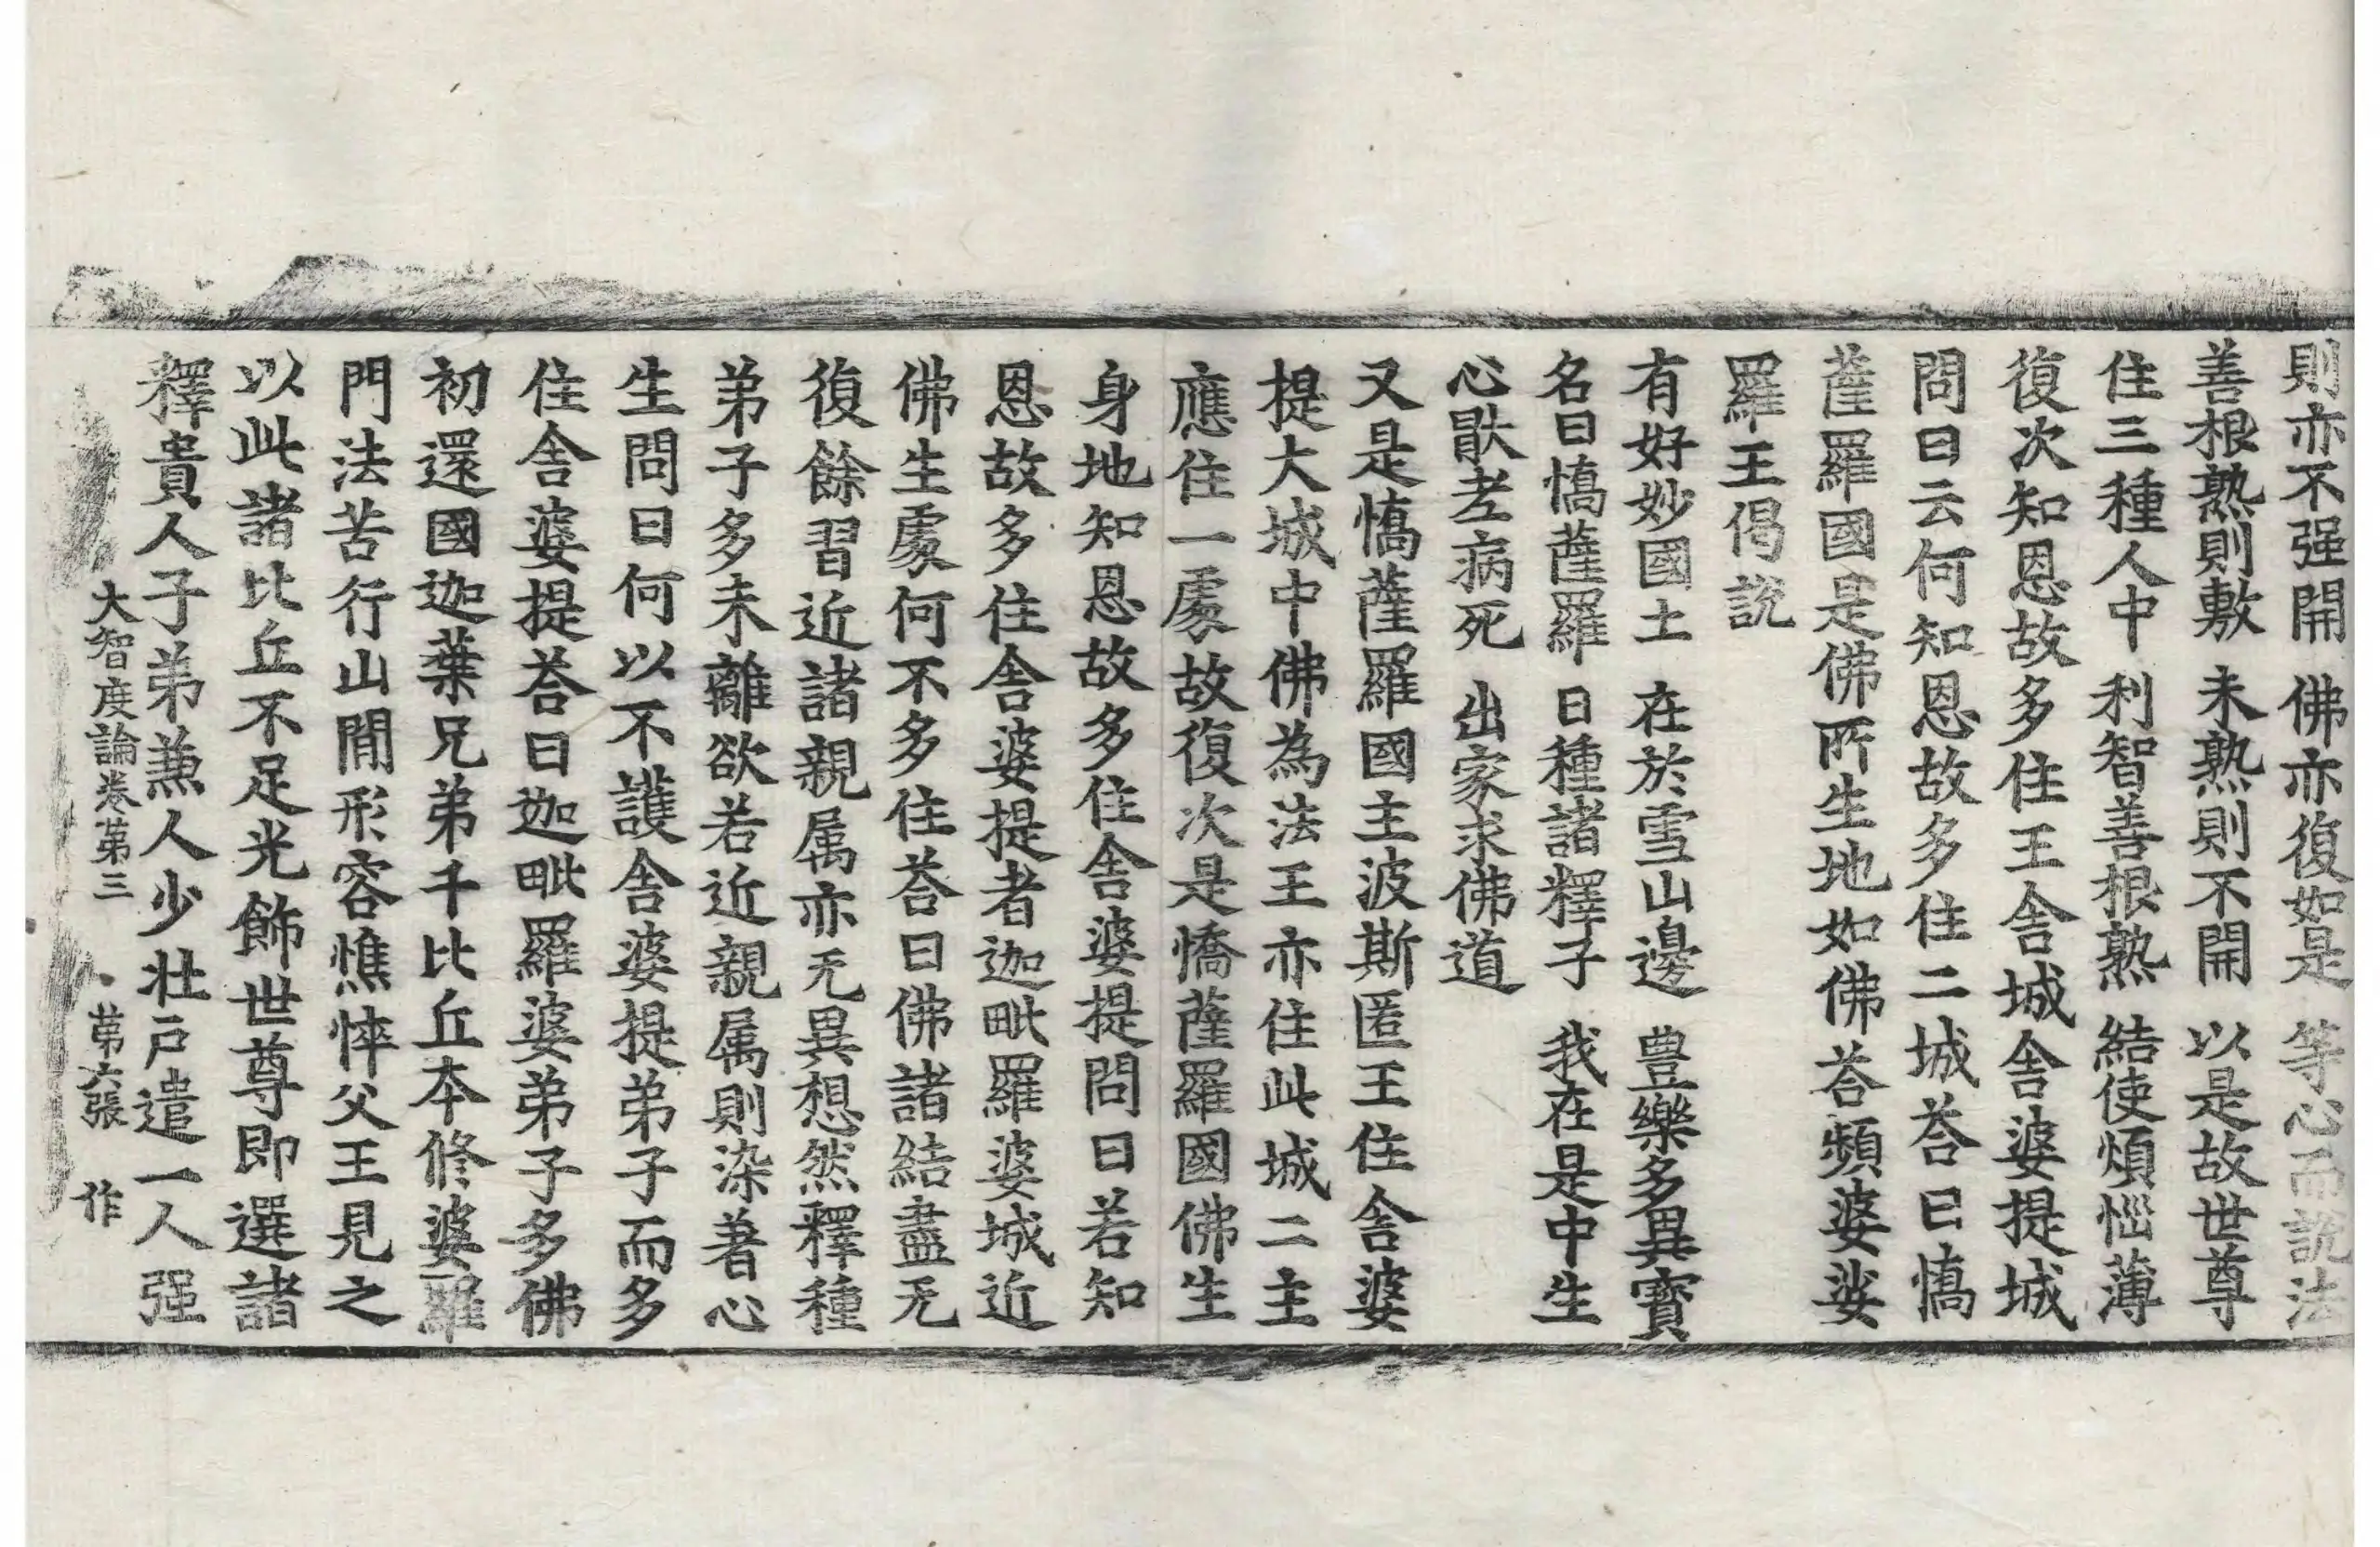 則亦不强開 佛亦復如是 等心而說法
善根熟則敷 未熟則不開 以是故世尊
住三種人中 利智善根熟 結使煩惱薄
復次知恩故多住王舍城舍婆提城
問曰云何知恩故多住二城荅曰憍
薩羅國是佛所生地如佛荅頻婆娑
羅王偈說
有好妙國土 在於雪山邊 豊樂多異寶
名曰憍薩羅 日種諸釋子 我在是中生
心猒老病死 出家求佛道
又是憍薩羅國主波斯匿王住舍婆
提大城中佛為法王亦住此城二主
應住一處故復次是憍薩羅國佛生
身地知恩故多住舍婆提問曰若知
恩故多住舍婆提者迦毗羅婆城近
佛生處何不多住荅曰佛諸結盡无
復餘習近諸親属亦无異想然釋種
弟子多未離欲若近親属則染著心
生問曰何以不護舍婆提弟子而多
住舍婆提荅曰迦毗羅婆弟子多佛
初還國迦葉兄弟千比丘本修婆羅
門法苦行山閒形容憔悴父王見之
以此諸比丘不足光飾世尊即選諸
釋貴人子弟兼人少壯戶遣一人强
大智度論卷第三 第六張 作